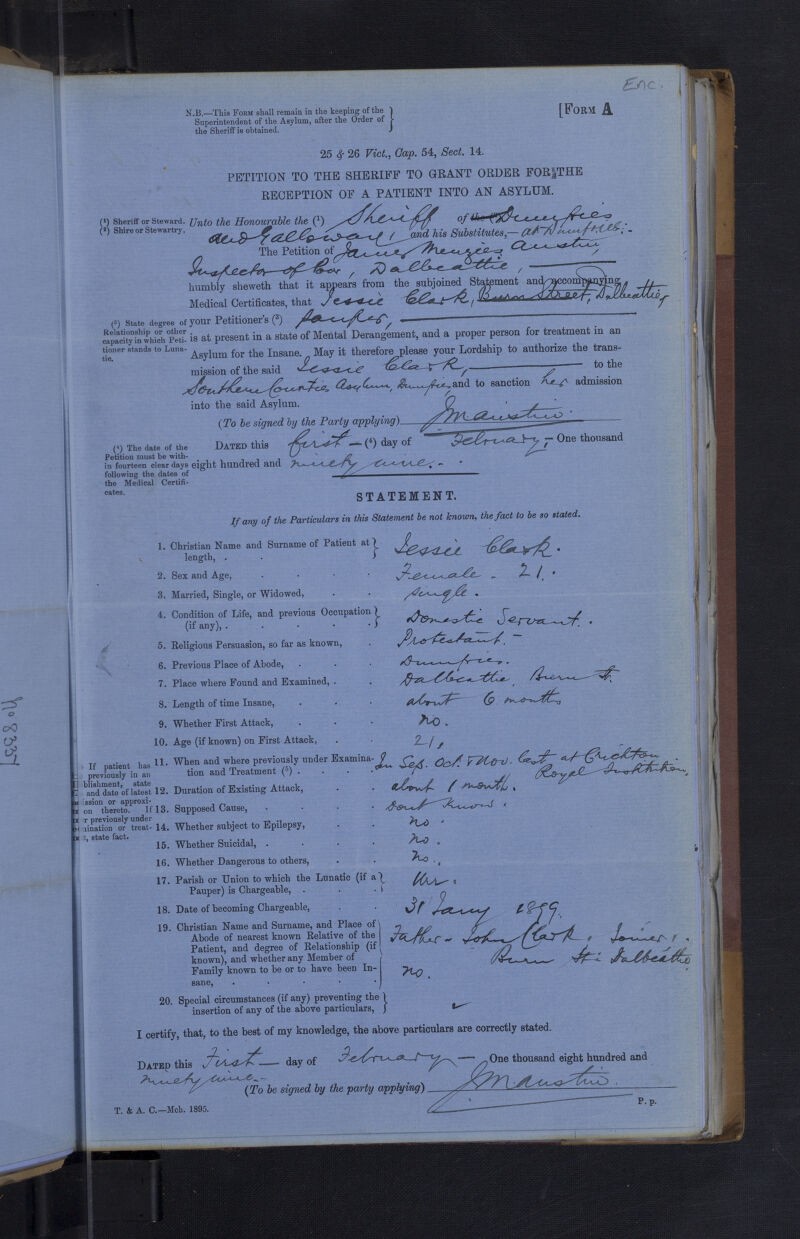 Enc.
N.B.—This Form shall remain in the keeping of the
Superintendent of the Asylum, after the Order of
the Sheriff is obtained.
[Form A
25 & 26 Vict., Cap. 54, Sect. 14.
PETITION TO THE SHERIFF TO GRANT ORDER FOR THE
RECEPTION OF A PATIENT INTO AN ASYLUM.
(¹) Sheriff or Steward.
(²) Shire or Stewartry.
Unto the Honourable the (¹) Sheriff of the Dumfries
and Galloway, and his Substitutes,— at Dumfries:-
The Petition of James Menzies Austin,
Inspector of Poor, Dalbeattie,
humbly sheweth that it appears from the subjoined Statement and accompanying
Medical Certificates, that Jessie Clark, Burn Street, Dalbeattie,
(³) State degree of
Relationship or other
capacity in which Peti-
tioner stands to Luna-
tic.
your Petitioner's (³) pauper,
is at present in a state of Mental Derangement, and a proper person for treatment in an
Asylum for the Insane. May it therefore please your Lordship to authorize the trans-
mission of the said Jessie Clark, to the
Southern Counties Asylum, Dumfries, and to sanction her admission
into the said Asylum.
(To be signed by the Party applying) JM Austin.
(⁴) The date of the
Petition must be with-
in fourteen clear days
following the dates of
the Medical Certifi-
cates.
Dated this first — (⁴) day of February,- One thousand
eight hundred and ninety nine.-
STATEMENT.
If any of the Particulars in this Statement be not known, the fact to be so stated.
1. Christian Name and Surname of Patient at
length, . Jessie Clark.
2. Sex and Age, Female - 21.
3. Married, Single, or Widowed, single.
4. Condition of Life, and previous Occupation
(if any), . Domestic Servant.
5. Religious Persuasion, so far as known, Protestant.-
6. Previous Place of Abode, Dumfries.
7. Place where Found and Examined, . Dalbeattie, Burn St.
8. Length of time Insane, about 6 months
9. Whether First Attack, no.
10. Age (if known) on First Attack, 21,
If patient has
previously in an
blishment, state
and date of latest
ission or approxi-
on thereto. If
r previously under
mination or treat-
, state fact.
11. When and where previously under Examina-
tion and Treatment (⁵) . In Sep. Oct. & Nov. last at Crichton
Royal Institution.
12. Duration of Existing Attack, about 1 month.
13. Supposed Cause, Dont know.
14. Whether subject to Epilepsy, no.
15. Whether Suicidal, . no.
16. Whether Dangerous to others, no.
17. Parish or Union to which the Lunatic (if a
Pauper) is Chargeable, . Urr.
18. Date of becoming Chargeable, 31 Jany 1899.
19. Christian Name and Surname, and Place of
Abode of nearest known Relative of the
Patient, and degree of Relationship (if
known), and whether any Member of
Family known to be or to have been In-
sane,
Father - John Clark, Joiner,
Burn St: Dalbeattie
no.
20. Special circumstances (if any) preventing the
insertion of any of the above particulars,
I certify, that, to the best of my knowledge, the above particulars are correctly stated.
Dated this First — day of February — One thousand eight hundred and
ninety nine.-
(To be signed by the party applying) JM Austin.
T. & A. C.—Mch. 1895.
P. p.
No 8337